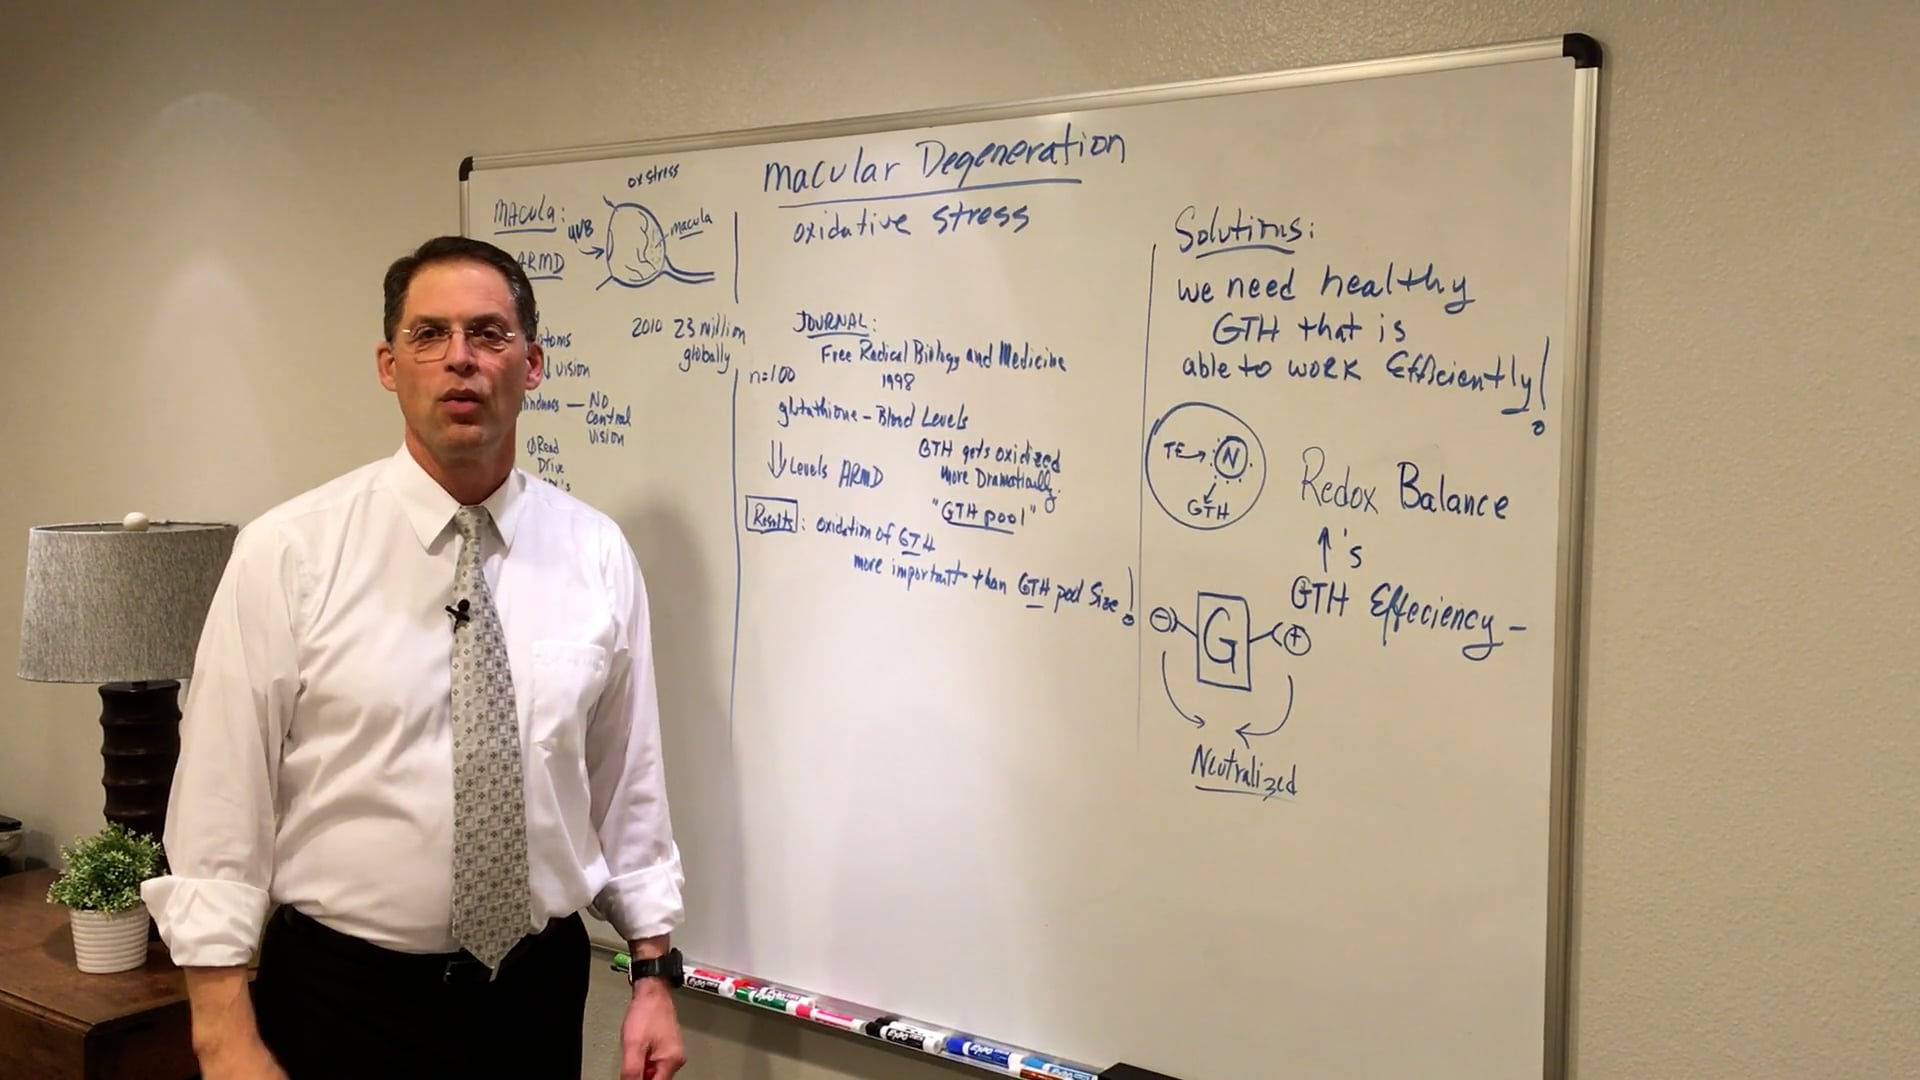 Macular Degeneration
oxidative stress
ox stress
Macula:
UVB
macula
ARMD
2010 23 million
globally
↓ vision
No
Central
vision
Read
Drive
JOURNAL:
Free Radical Biology and Medicine
n=100
1998
glutathione - Blood Levels
↓↓ Levels ARMD
GTH gets oxidized
more Dramatically.
"GTH pool"
Results: oxidation of GTH
more important than GTH pool Size!
Solutions:
we need healthy
GTH that is
able to work Efficiently!
TE → N
GTH
Redox Balance
↑'s
GTH Effeciency -
- G +
Neutralized